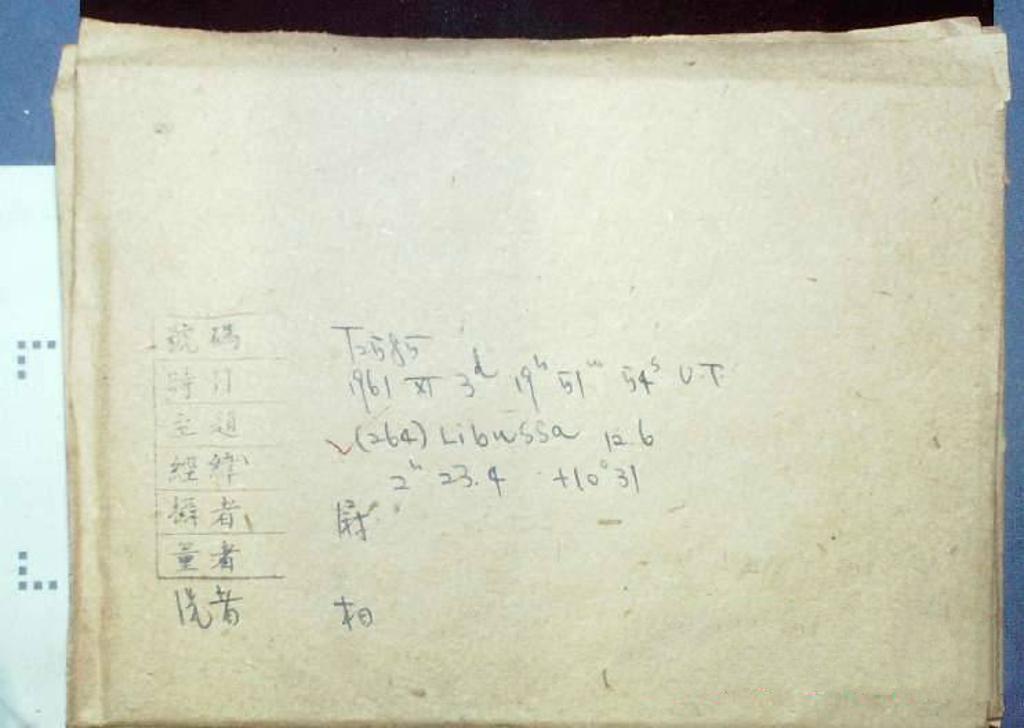 號碼 T2585
時刻 1961 XI 3d 19h 51m 54s U.T.
主題 (264) Libussa 12.6
經緯 2h 23.4 +10°31
攝者 尉
量者
洗者 相